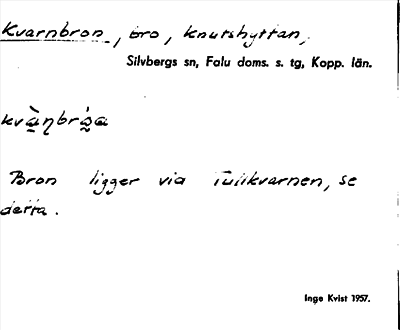 Kvarnbron, bro, Knutshyttan,
Silvbergs sn, Falu doms. s. tg, Kopp. län.
Bron ligger via Tullkvarnen, se
detta.
Inge Kvist 1957.